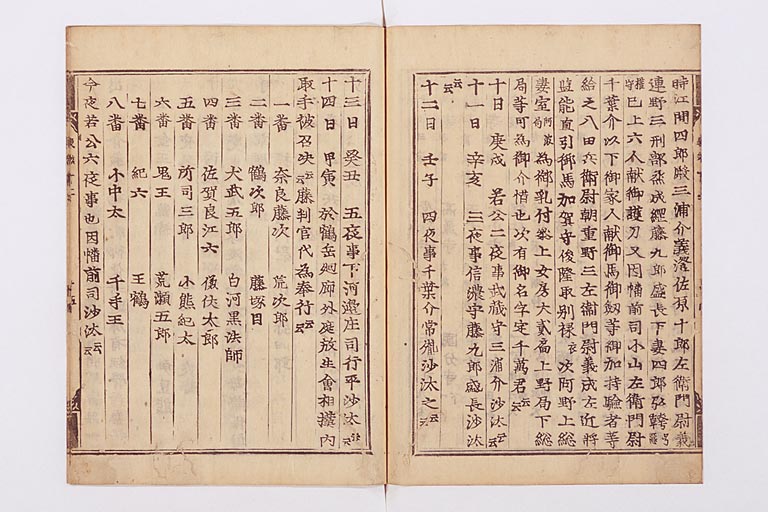 時江間四郎殿三浦介義澄佐原十郎左衛門尉義
連野三刑部丞成綱藤九郎盛長下妻四郎弘幹号
権守已上六人献御護刀又因幡前司小山左衛門尉
千葉介以下御家人献御馬御劔等御加持驗者等
給之八田兵衛尉朝重野三左衛門尉義成左近将
監能直引御馬加賀守俊隆取別禄云々次阿野上総
妻室阿波局為御乳付參上女房大貳局上野局下総
局等可為御介惜也次有御名字定千萬君云々
十日 庚戌 若公二夜事武蔵守三浦介沙汰云々
十一日 辛亥 三夜事信濃守藤九郎盛長沙汰
云々
十二日 壬子 四夜事千葉介常胤沙汰之云々
十三日 癸丑 五夜事下河邊庄司行平沙汰云々
十四日 甲寅 於鶴岳廻廊外庭放生會相撲内
取手被召決云々藤判官代為奉行云々
一番 奈良藤次 荒次郎
二番 鶴次郎 藤塚目
三番 犬武五郎 白河黒法師
四番 佐賀良江六 傔仗太郎
五番 所司三郎 小熊紀太
六番 鬼王 荒瀬五郎
七番 紀六 王鶴
八番 小中太 千手王
今夜若公六夜事也因幡前司沙汰云々